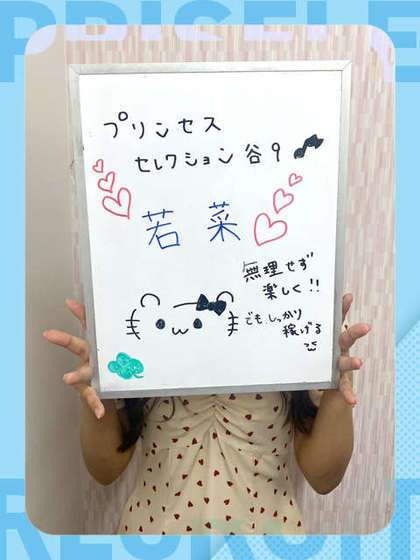 PRISELE
プリンセス
セレクション谷9
若菜
無理せず
楽しく!!
でもしっかり
稼げる
RECRUIT